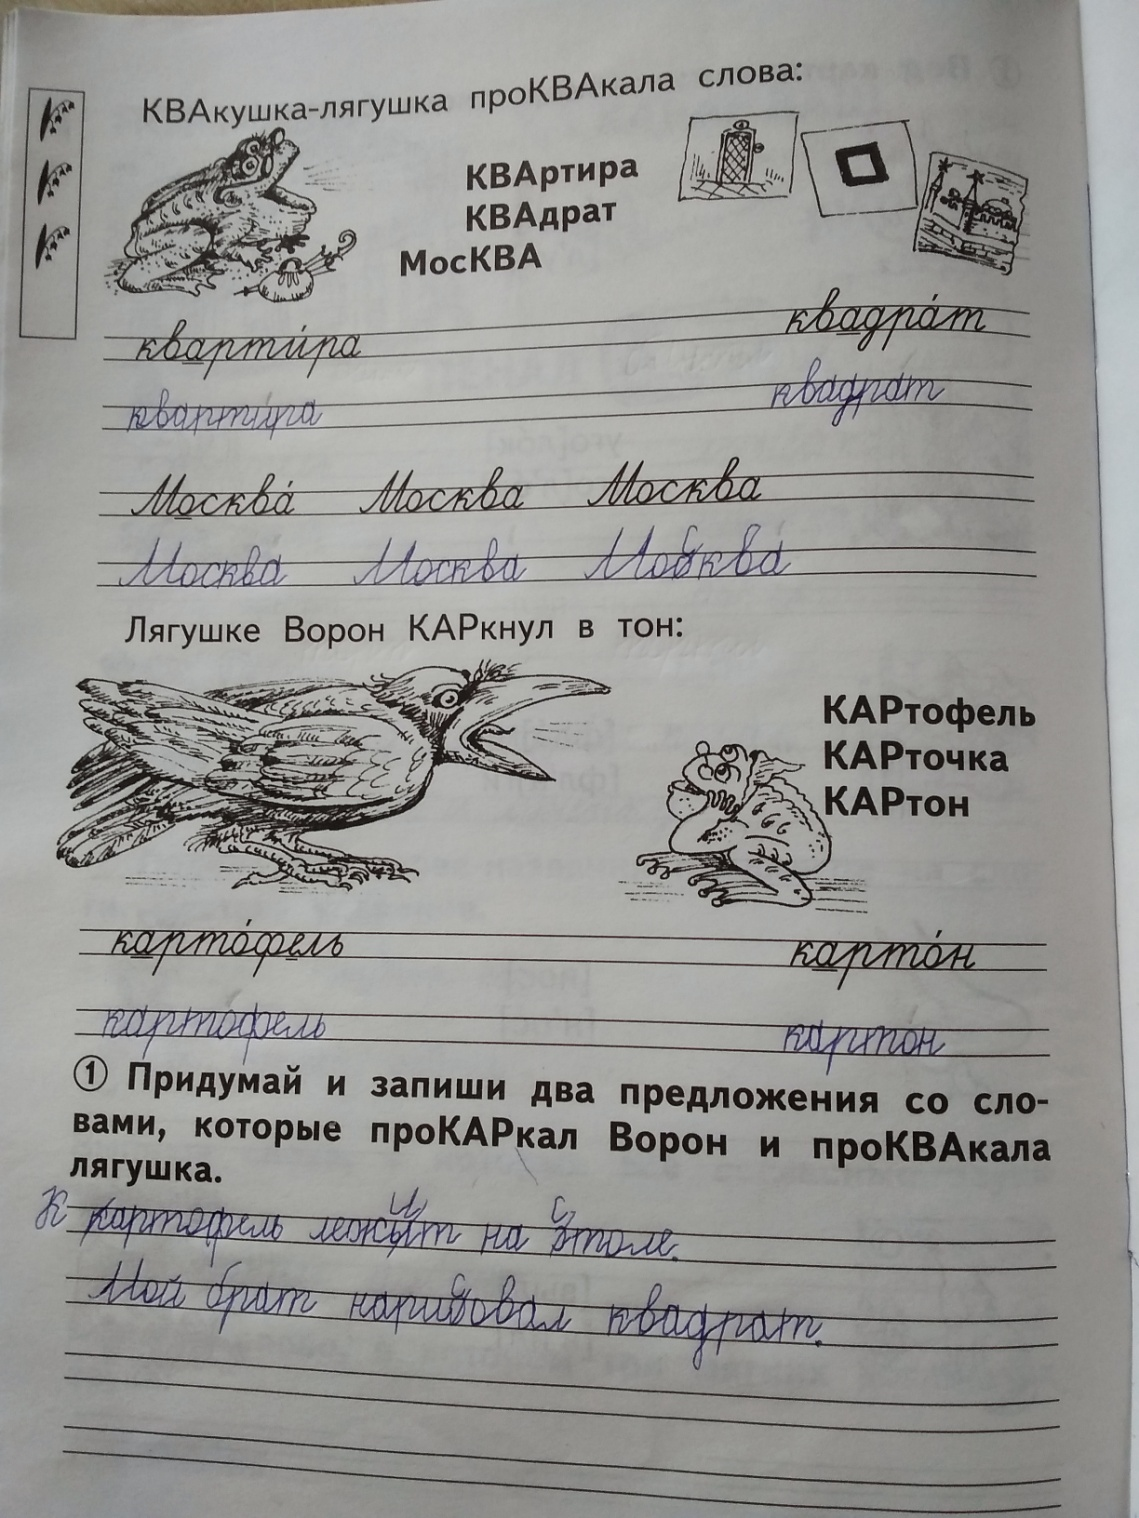 КВАкушка-лягушка проКВАкала слова:
КВАртира
КВАдрат
МосКВА
кварти́ра квадра́т
кварти́ра квадрат
Москва́ Москва Москва
Москва́ Москва Москва́
Лягушке Ворон КАРкнул в тон:
КАРтофель
КАРточка
КАРтон
карто́фель карто́н
карто́фель картон
1 Придумай и запиши два предложения со сло-
вами, которые проКАРкал Ворон и проКВАкала
лягушка.
Картофель лежит на столе.
Мой брат нарисовал квадрат.